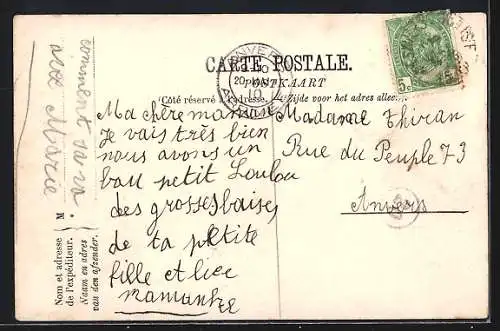 CARTE POSTALE.
POSTKAART
Côté réservé à l'adresse. Zijde voor het adres alleen.
ANVERS
10
ANTWERPEN
5c
Ma chère maman
Je vais très bien
nous avons un
bau petit Loulou
des grosses baises
de ta petite
fille
mamantze
Madame Thiran
Rue du Peuple 73
Anvers
comment sa va
avec Marie
Nom et adresse
de l'expéditeur.
Naam en adres
van den afzender.
M